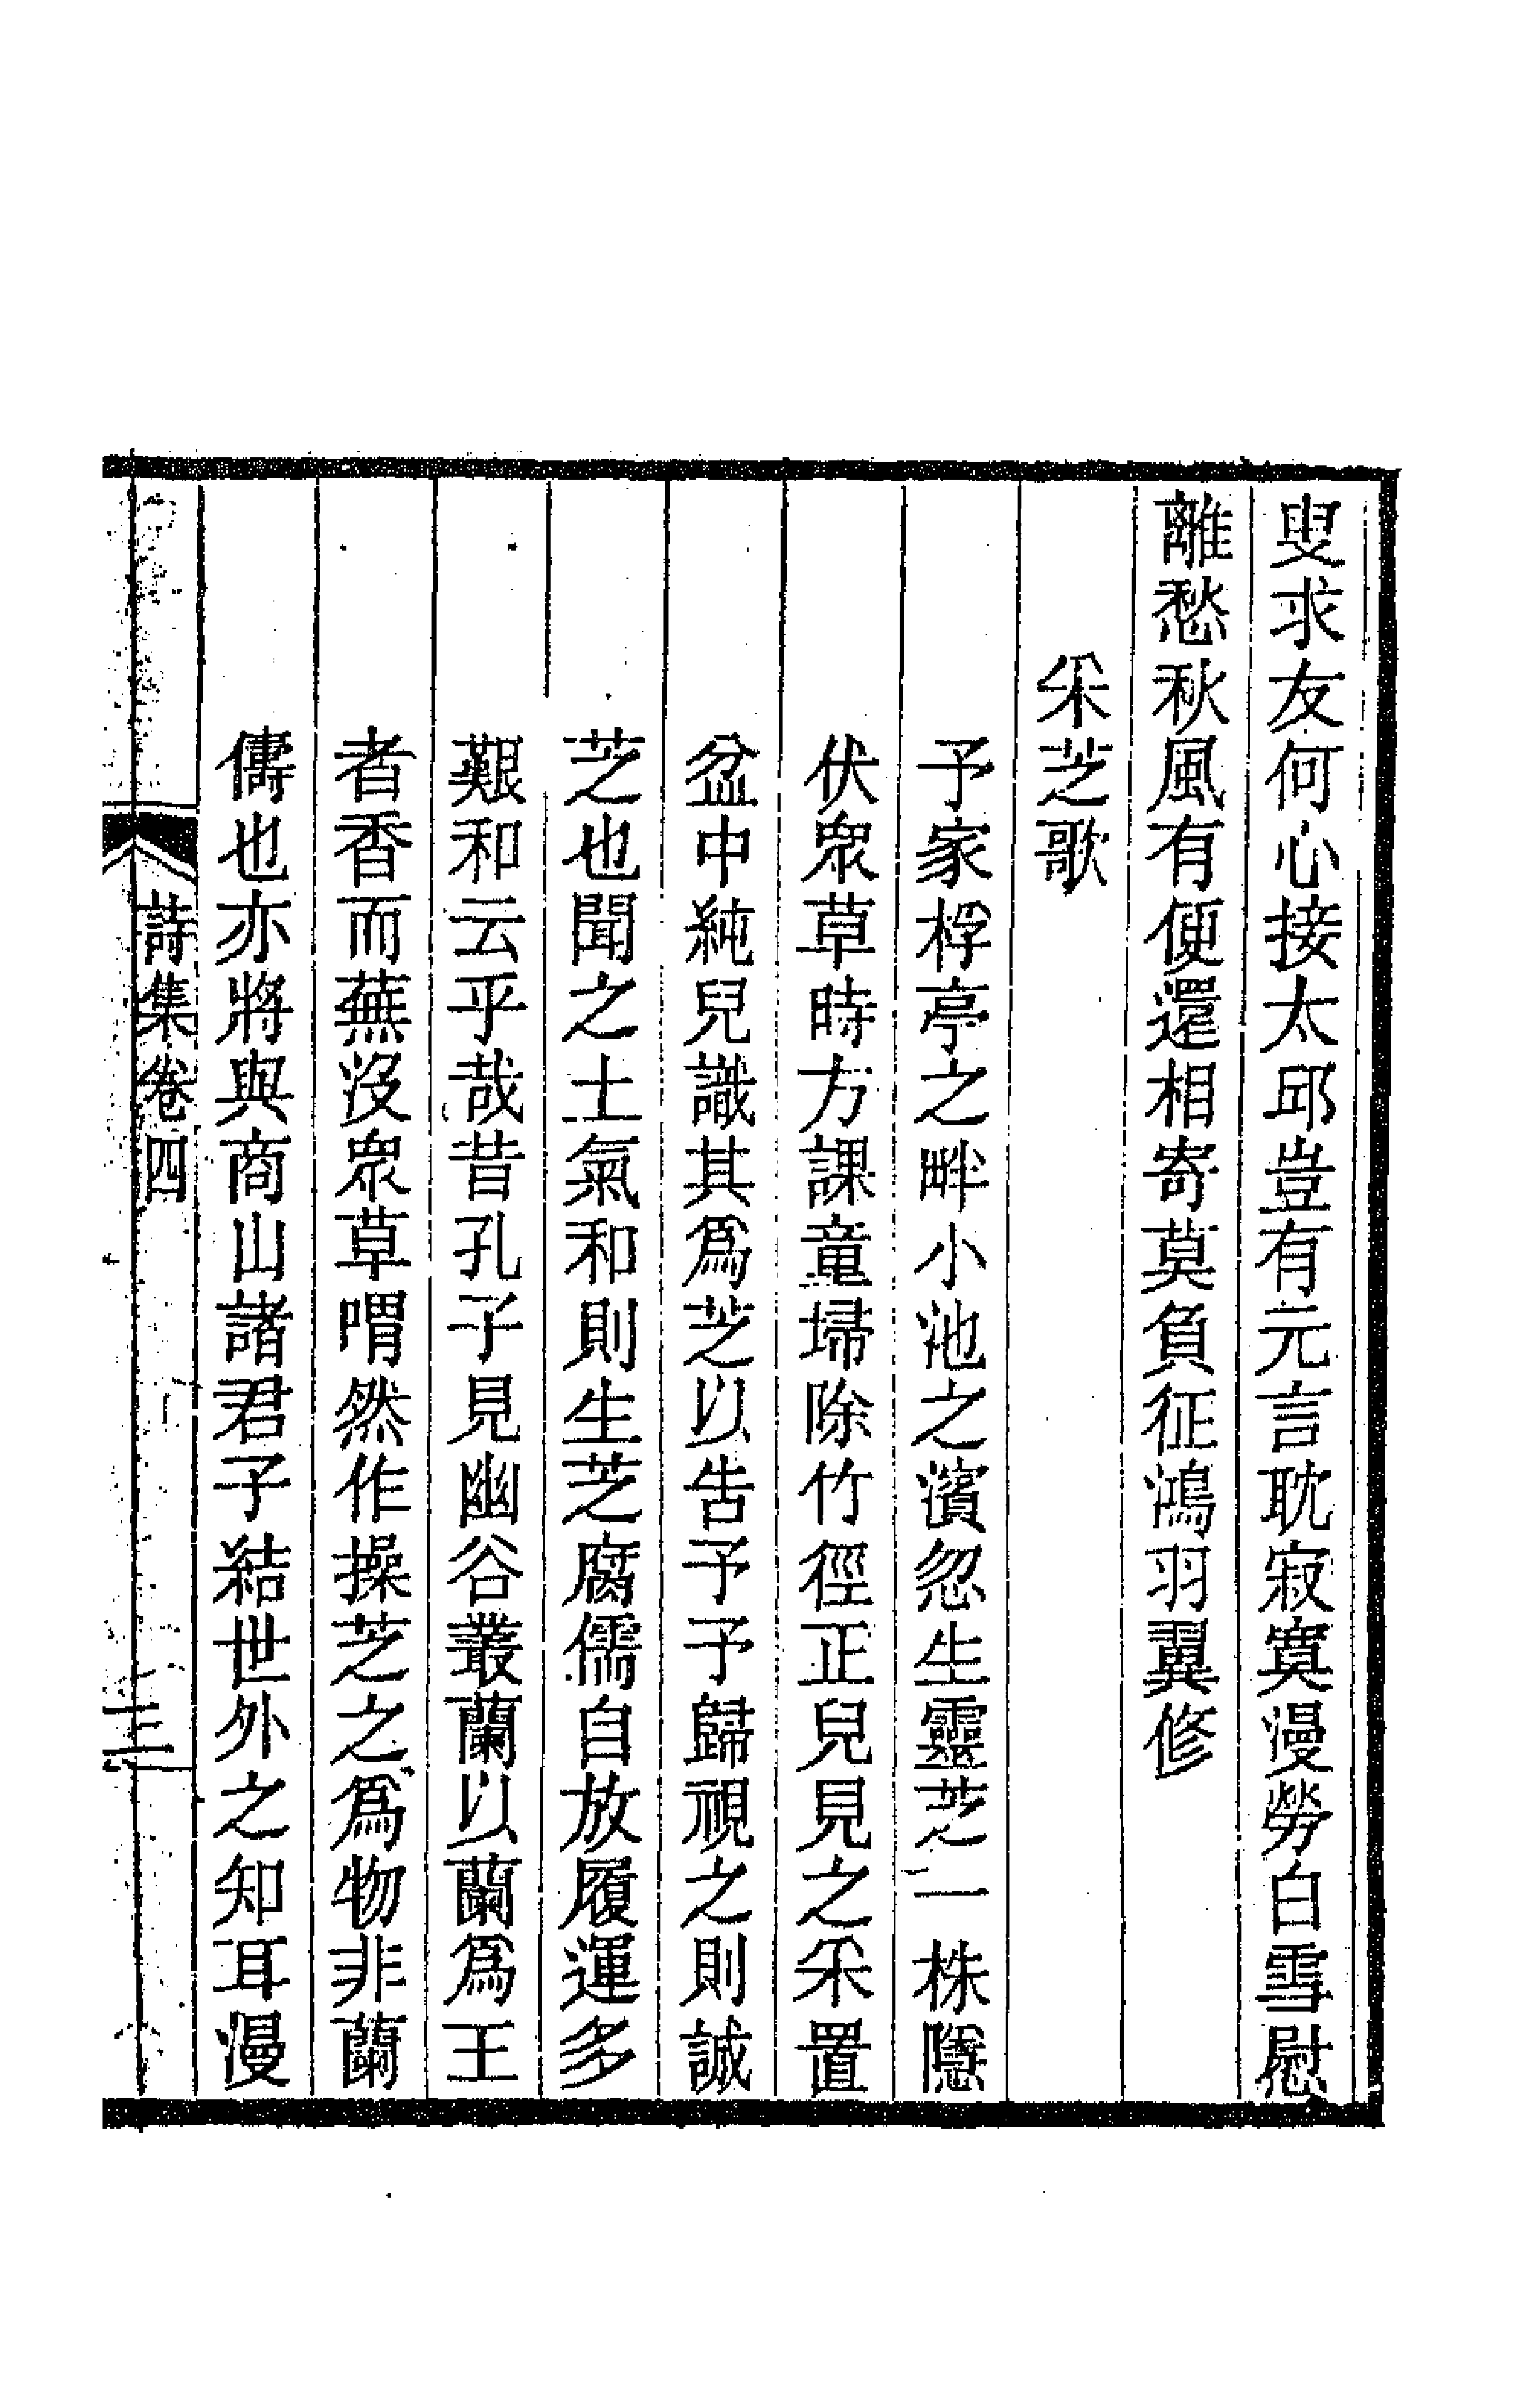 叟求友何心接太邱豈有元言耽寂寞漫勞白雪慰
離愁秋風有便還相寄莫負征鴻羽翼修
采芝歌
予家桴亭之畔小池之濱忽生靈芝一株隱
伏眾草時方課童埽除竹徑正兒見之采置
盆中純兒識其爲芝以告予予歸視之則誠
芝也聞之土氣和則生芝腐儒自放履運多
艱和云乎哉昔孔子見幽谷叢蘭以蘭爲王
者香而蕪沒眾草喟然作操芝之爲物非蘭
儔也亦將與商山諸君子結世外之知耳漫
詩集卷四
三